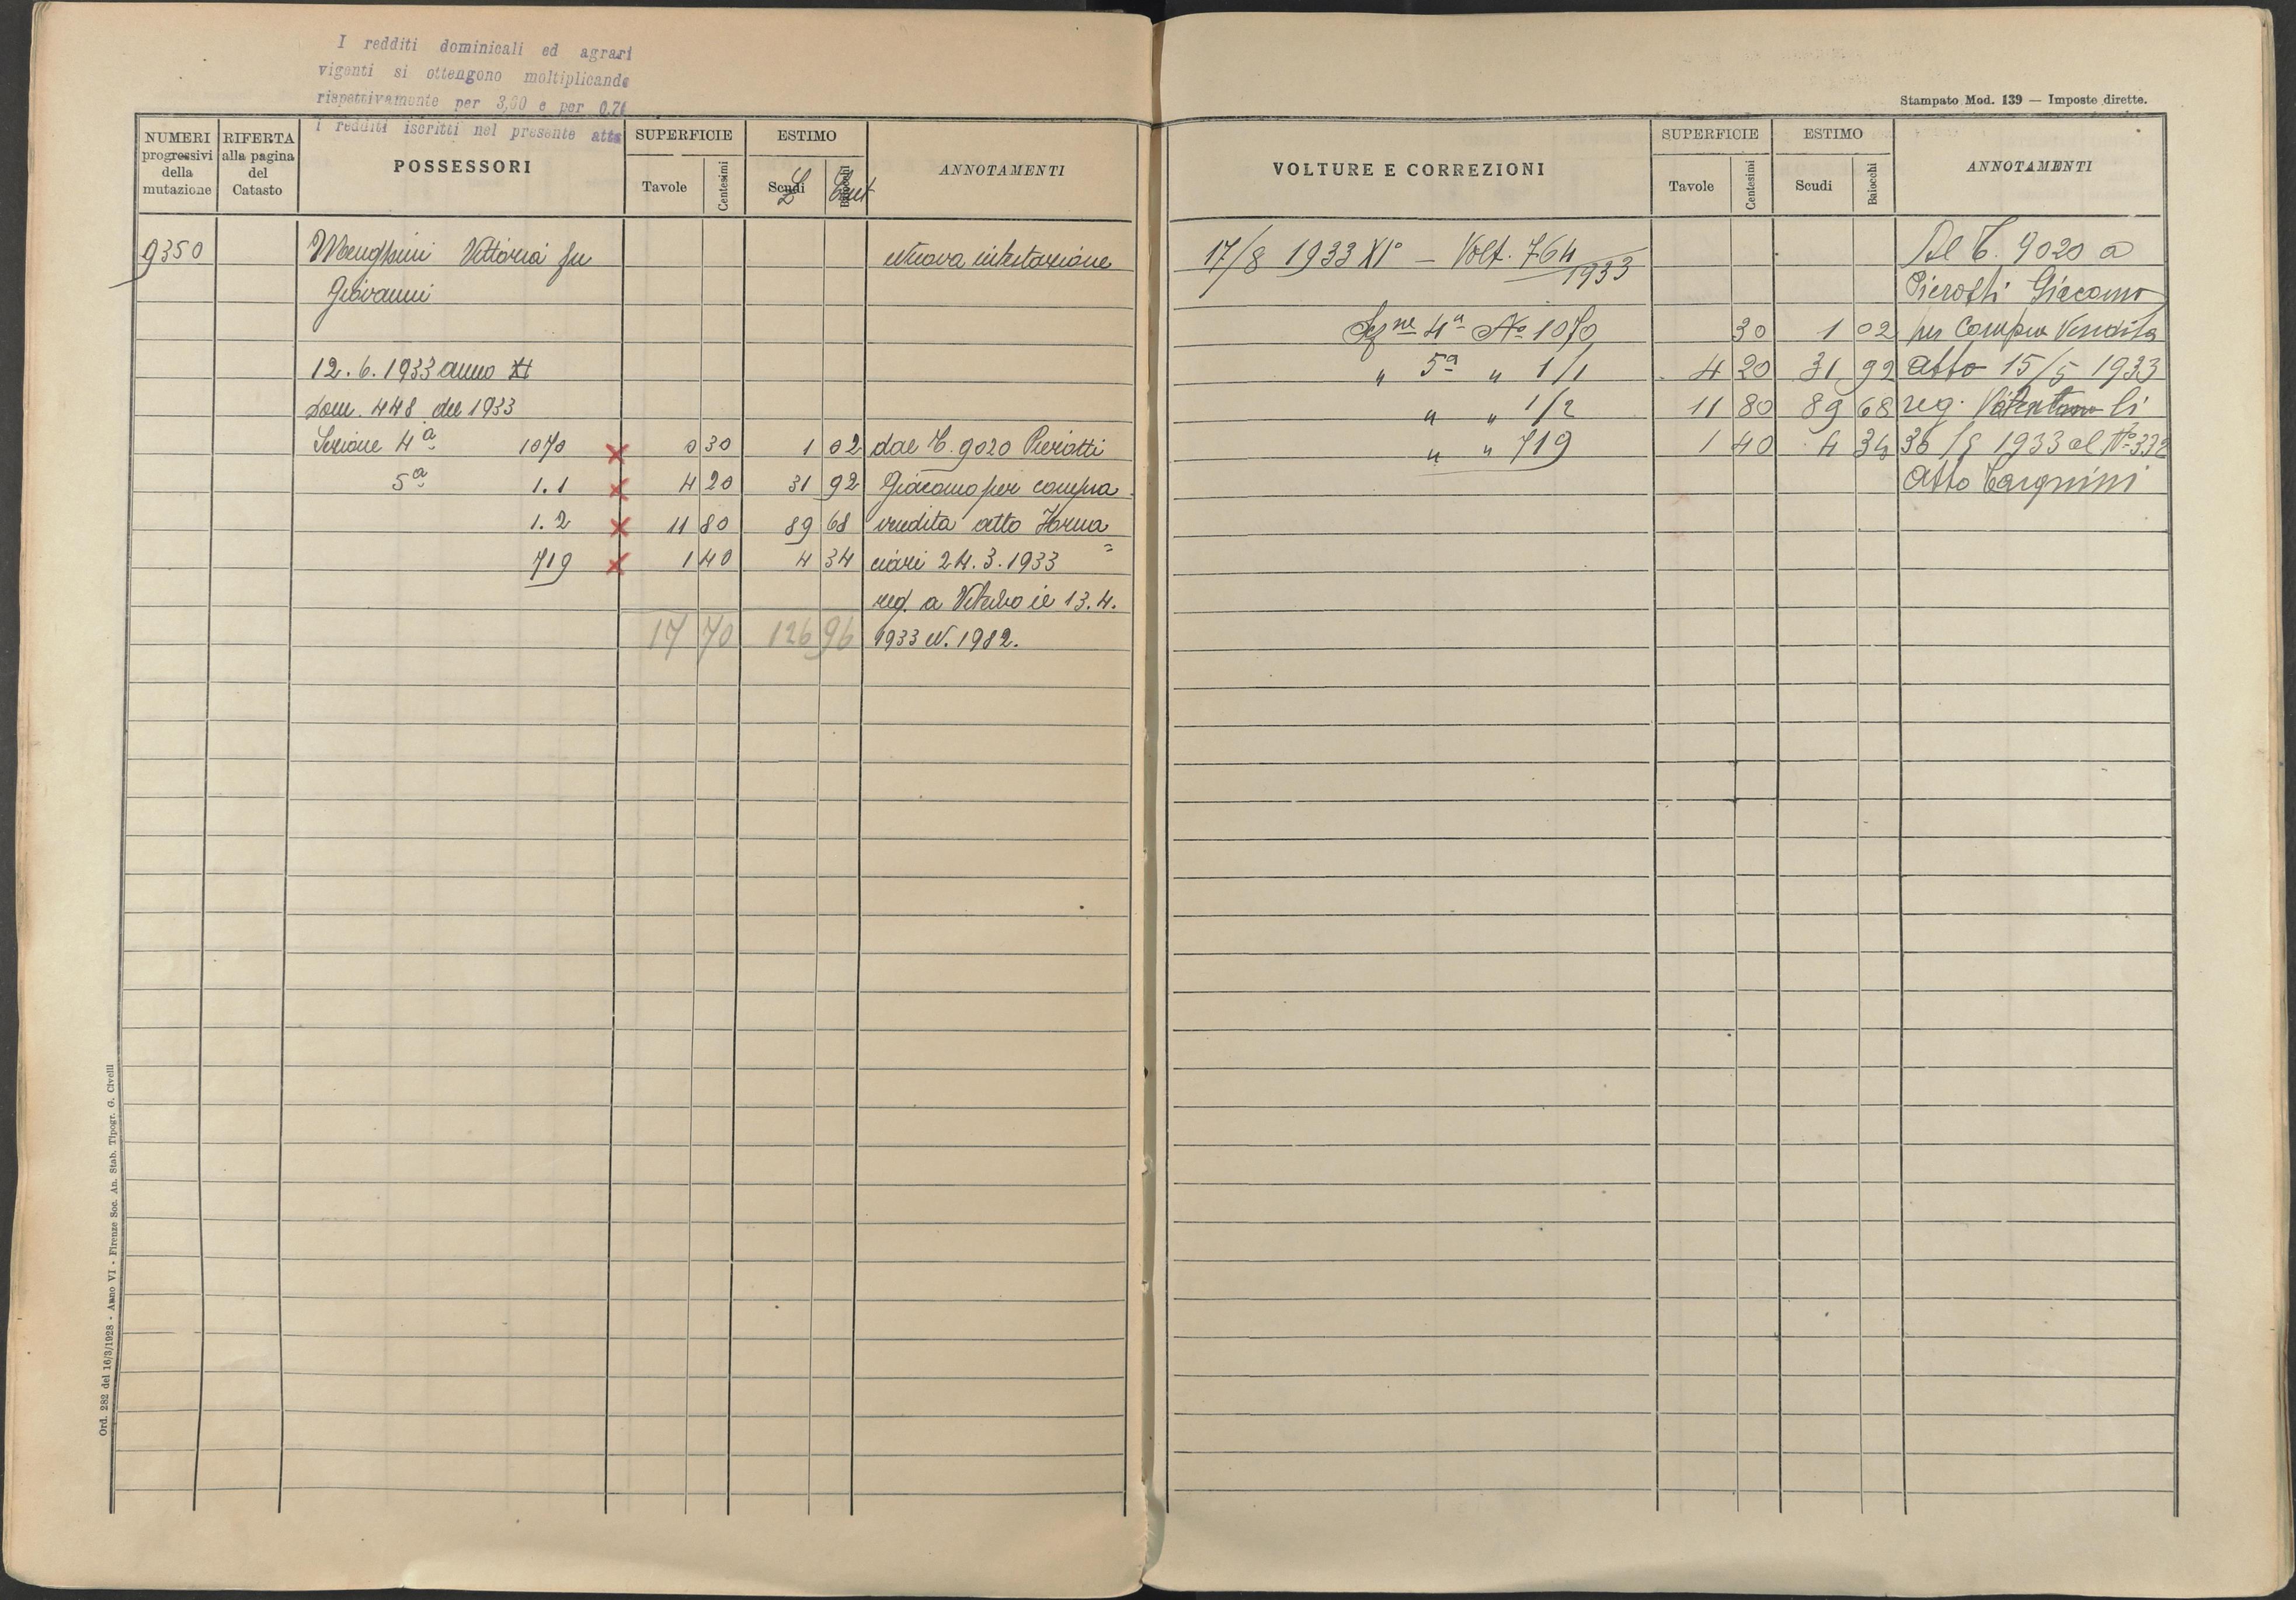 I redditi dominicali ed agrari
vigenti si ottengono moltiplicando
rispettivamente per 3,00 e per 0.71
i redditi iscritti nel presente atto
NUMERI progressivi della mutazione
RIFERTA alla pagina del Catasto
POSSESSORI
SUPERFICIE
Tavole Centesimi
ESTIMO
Scudi Baiocchi
L Cent
ANNOTAMENTI
9350 Menghini Vittoria fu Nuova intestazione
Giovanni
12.6.1933 anno XI
Dom. 448 del 1933
Sezione 4ª 1070 × 0 30 1 02 dal C. 9020 Pierotti
5ª 1.1 × 4 20 31 92 Giacomo per compra
1.2 × 11 80 89 68 vendita atto Forna=
719 × 1 40 4 34 ciari 24.3.1933
reg. a Viterbo il 13.4.
17 70 126 96 1933 N. 1982.
Ord. 282 del 16/3/1928 - Anno VI - Firenze Soc. An. Stab. Tipogr. G. Civelli
Stampato Mod. 139 — Imposte dirette.
VOLTURE E CORREZIONI
SUPERFICIE
Tavole Centesimi
ESTIMO
Scudi Baiocchi
ANNOTAMENTI
17/8 1933 XI° — Volt. 764/1933 Al C. 9020 a
Pierotti Giacomo
Sezne 4ª No 1070 30 1 02 per Compra Vendita
" 5ª " 1/1 4 20 31 92 Atto 15/5 1933
" " 1/2 11 80 89 68 reg. Valentano li
" " 719 1 40 4 34 30/5 1933 al No 332
Atto Cargnini